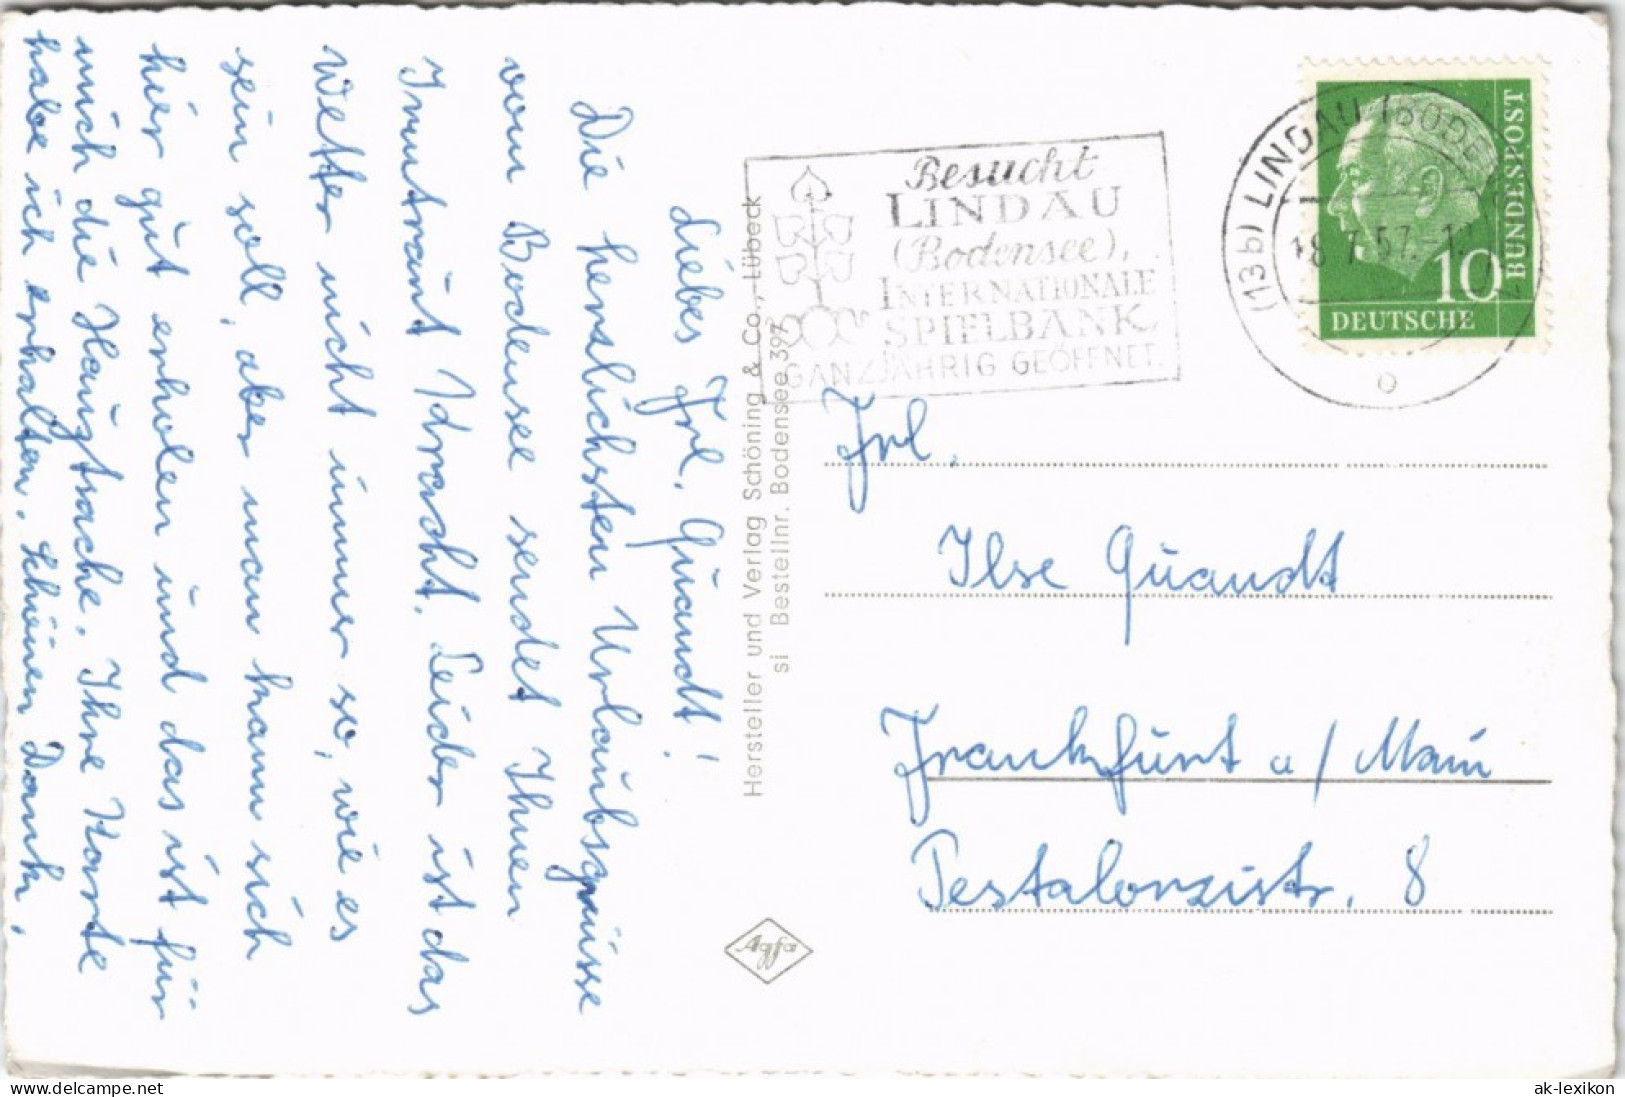 Liebes Frl. Quandt!
Die herzlichsten Urlaubsgrüsse
vom Bodensee sendet Ihnen
Irmtraut Kracht. Leider ist das
Wetter nicht immer so, wie es
sein soll, aber man kann sich
hier gut erholen und das ist für
mich die Hauptsache. Ihre Karte
habe ich erhalten. Schönen Dank.
Hersteller und Verlag Schöning & Co., Lübeck
si Bestellnr. Bodensee 397
Agfa
Besucht
LINDAU
(Bodensee),
INTERNATIONALE
SPIELBANK
GANZJÄHRIG GEÖFFNET.
(13b) LINDAU (BODE
18.7.57.-1
b
BUNDESPOST
10
DEUTSCHE
Frl.
Ilse Quandt
Frankfurt a/Main
Pestalozzistr. 8
ak-lexikon.de/delcampe.net
ak-lexikon